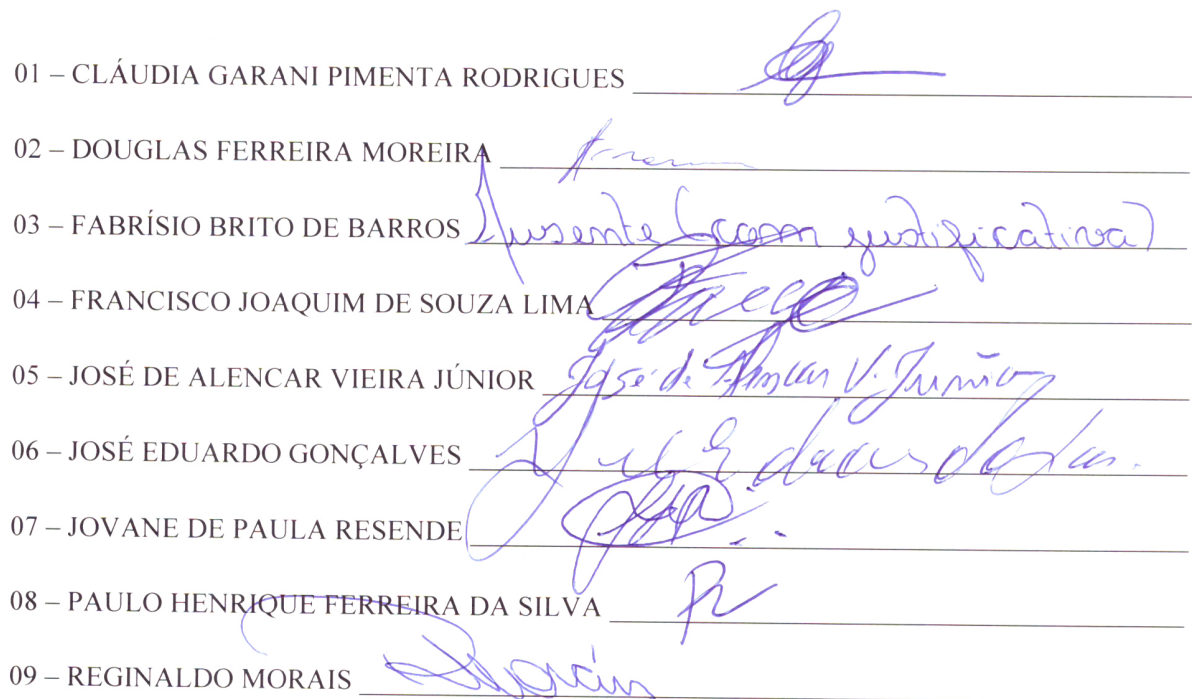 01 – CLÁUDIA GARANI PIMENTA RODRIGUES
02 – DOUGLAS FERREIRA MOREIRA
03 – FABRÍSIO BRITO DE BARROS Ausente (com justificativa)
04 – FRANCISCO JOAQUIM DE SOUZA LIMA
05 – JOSÉ DE ALENCAR VIEIRA JÚNIOR José de Alencar V. Júnior
06 – JOSÉ EDUARDO GONÇALVES
07 – JOVANE DE PAULA RESENDE
08 – PAULO HENRIQUE FERREIRA DA SILVA
09 – REGINALDO MORAIS